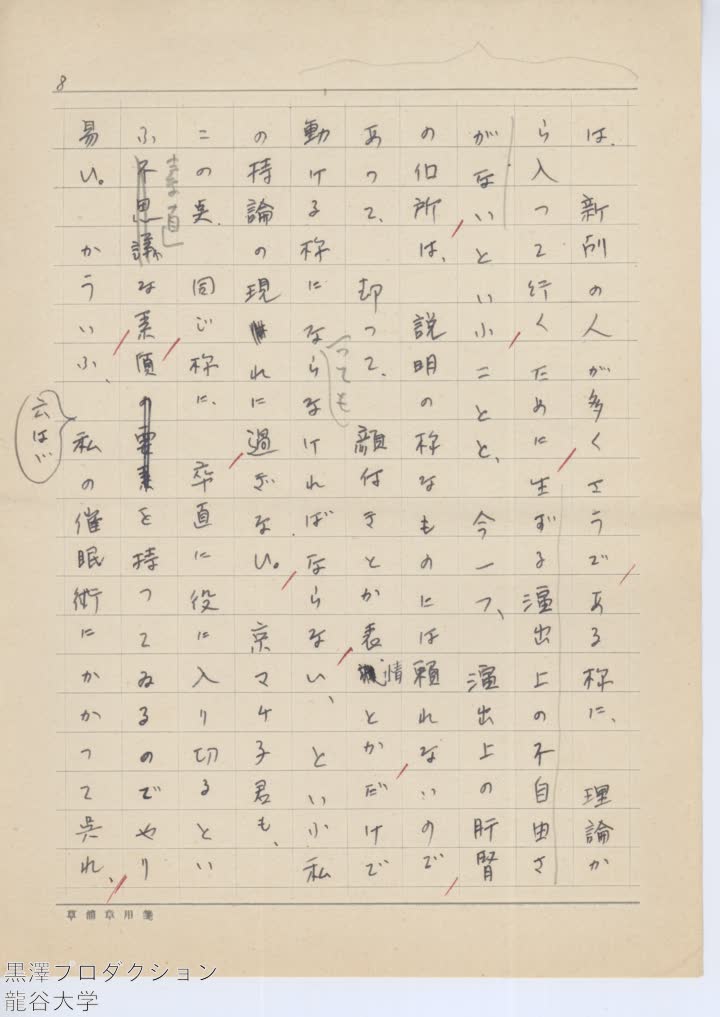 8
は、新劇の人が多くさうである称に、理論か
ら入つて行くために生ずる演出上の不自由さ
がないといふことと、今一つ、演出上の肝腎
の個所は、説明の称なものには頼れないので
あつて、却つて、顔付きとか表情とかだけで
動ける称にならなければならない、といふ私
つても
の持論の現れに過ぎない。京マチ子君も、
この点、同じ称に、卒直に役に入り切るとい
ふ不思議な素質の要素を持つてゐるのでやり
素直
易い。かういふ、私の催眠術にかかつて呉れ、
云はゞ
草稿草用箋
黒澤プロダクション
龍谷大学